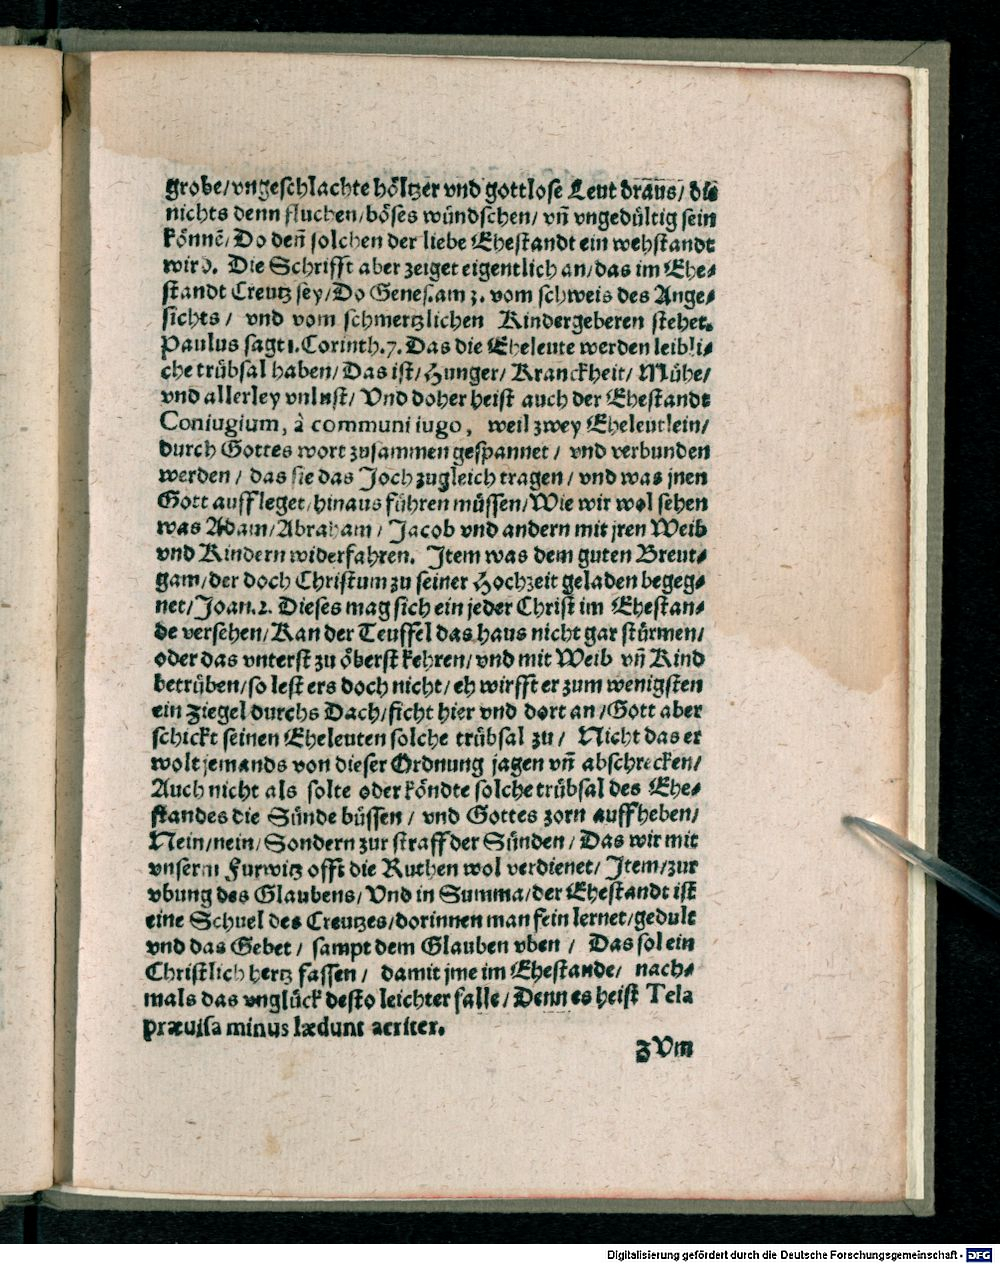 grobe/vngeschlachte höltzer vnd gottlose Leut draus/die
nichts denn fluchen/böses wündschen/vñ vngedültig sein
könnẽ/Do deñ solchen der liebe Ehestandt ein wehstandt
wird. Die Schrifft aber zeiget eigentlich an/das im Ehe-
standt Creutz sey/Do Genes.am 3. vom schweis des Ange-
sichts/ vnd vom schmertzlichen Kindergeberen stehet.
Paulus sagt 1. Corinth.7. Das die Eheleute werden leibli-
che trübsal haben/Das ist/Hunger/Kranckheit/Mühe/
vnd allerley vnlust/Vnd doher heist auch der Ehestandt
Coniugium, à communi iugo, weil zwey Eheleutlein/
durch Gottes wort zusammen gespannet/ vnd verbunden
werden/ das sie das Joch zugleich tragen/vnd was jnen
Gott auffleget/hinaus führen müssen/Wie wir wol sehen
was Adam/Abraham/Jacob vnd andern mit jren Weib
vnd Kindern widerfahren. Item was dem guten Breut-
gam/der doch Christum zu seiner Hochzeit geladen begeg-
net/Joan.2. Dieses mag sich ein jeder Christ im Ehestan-
de versehen/Kan der Teuffel das haus nicht gar stürmen/
oder das vnterst zu öberst kehren/vnd mit Weib vñ Kind
betrüben/so lest ers doch nicht/eh wirfft er zum wenigsten
ein ziegel durchs Dach/ficht hier vnd dort an/Gott aber
schickt seinen Eheleuten solche trübsal zu/ Nicht das er
wolt jemands von dieser Ordnung jagen vñ abschrecken/
Auch nicht als solte oder köndte solche trübsal des Ehe-
standes die Sünde büssen/ vnd Gottes zorn auffheben/
Nein/nein/Sondern zur straff der Sünden/Das wir mit
vnserm Furwitz offt die Ruthen wol verdienet/Item/zur
vbung des Glaubens/Vnd in Summa/der Ehestandt ist
eine Schuel des Creutzes/dorinnen man fein lernet/gedult
vnd das Gebet/ sampt dem Glauben vben/ Das sol ein
Christlich hertz fassen/ damit jme im Ehestande/ nach-
mals das vnglück desto leichter falle/Denn es heist Tela
prævisa minus lædunt acriter.
zVm
Digitalisierung gefördert durch die Deutsche Forschungsgemeinschaft - DFG